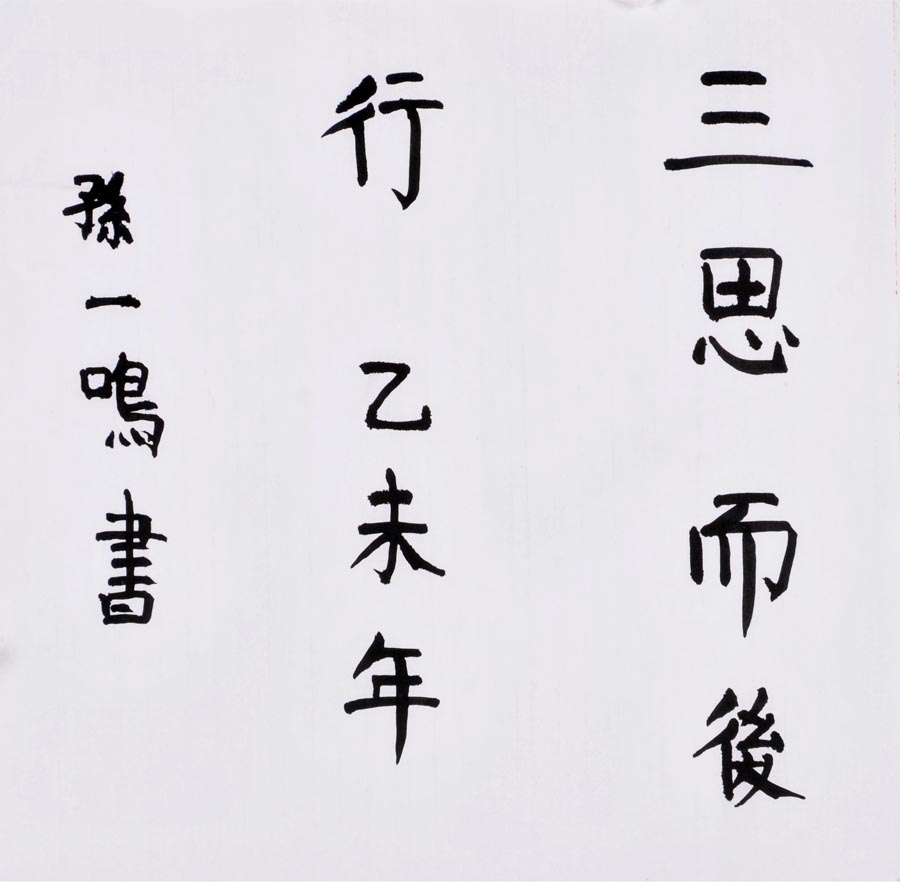 三思而後
行 乙未年
孫一鳴書